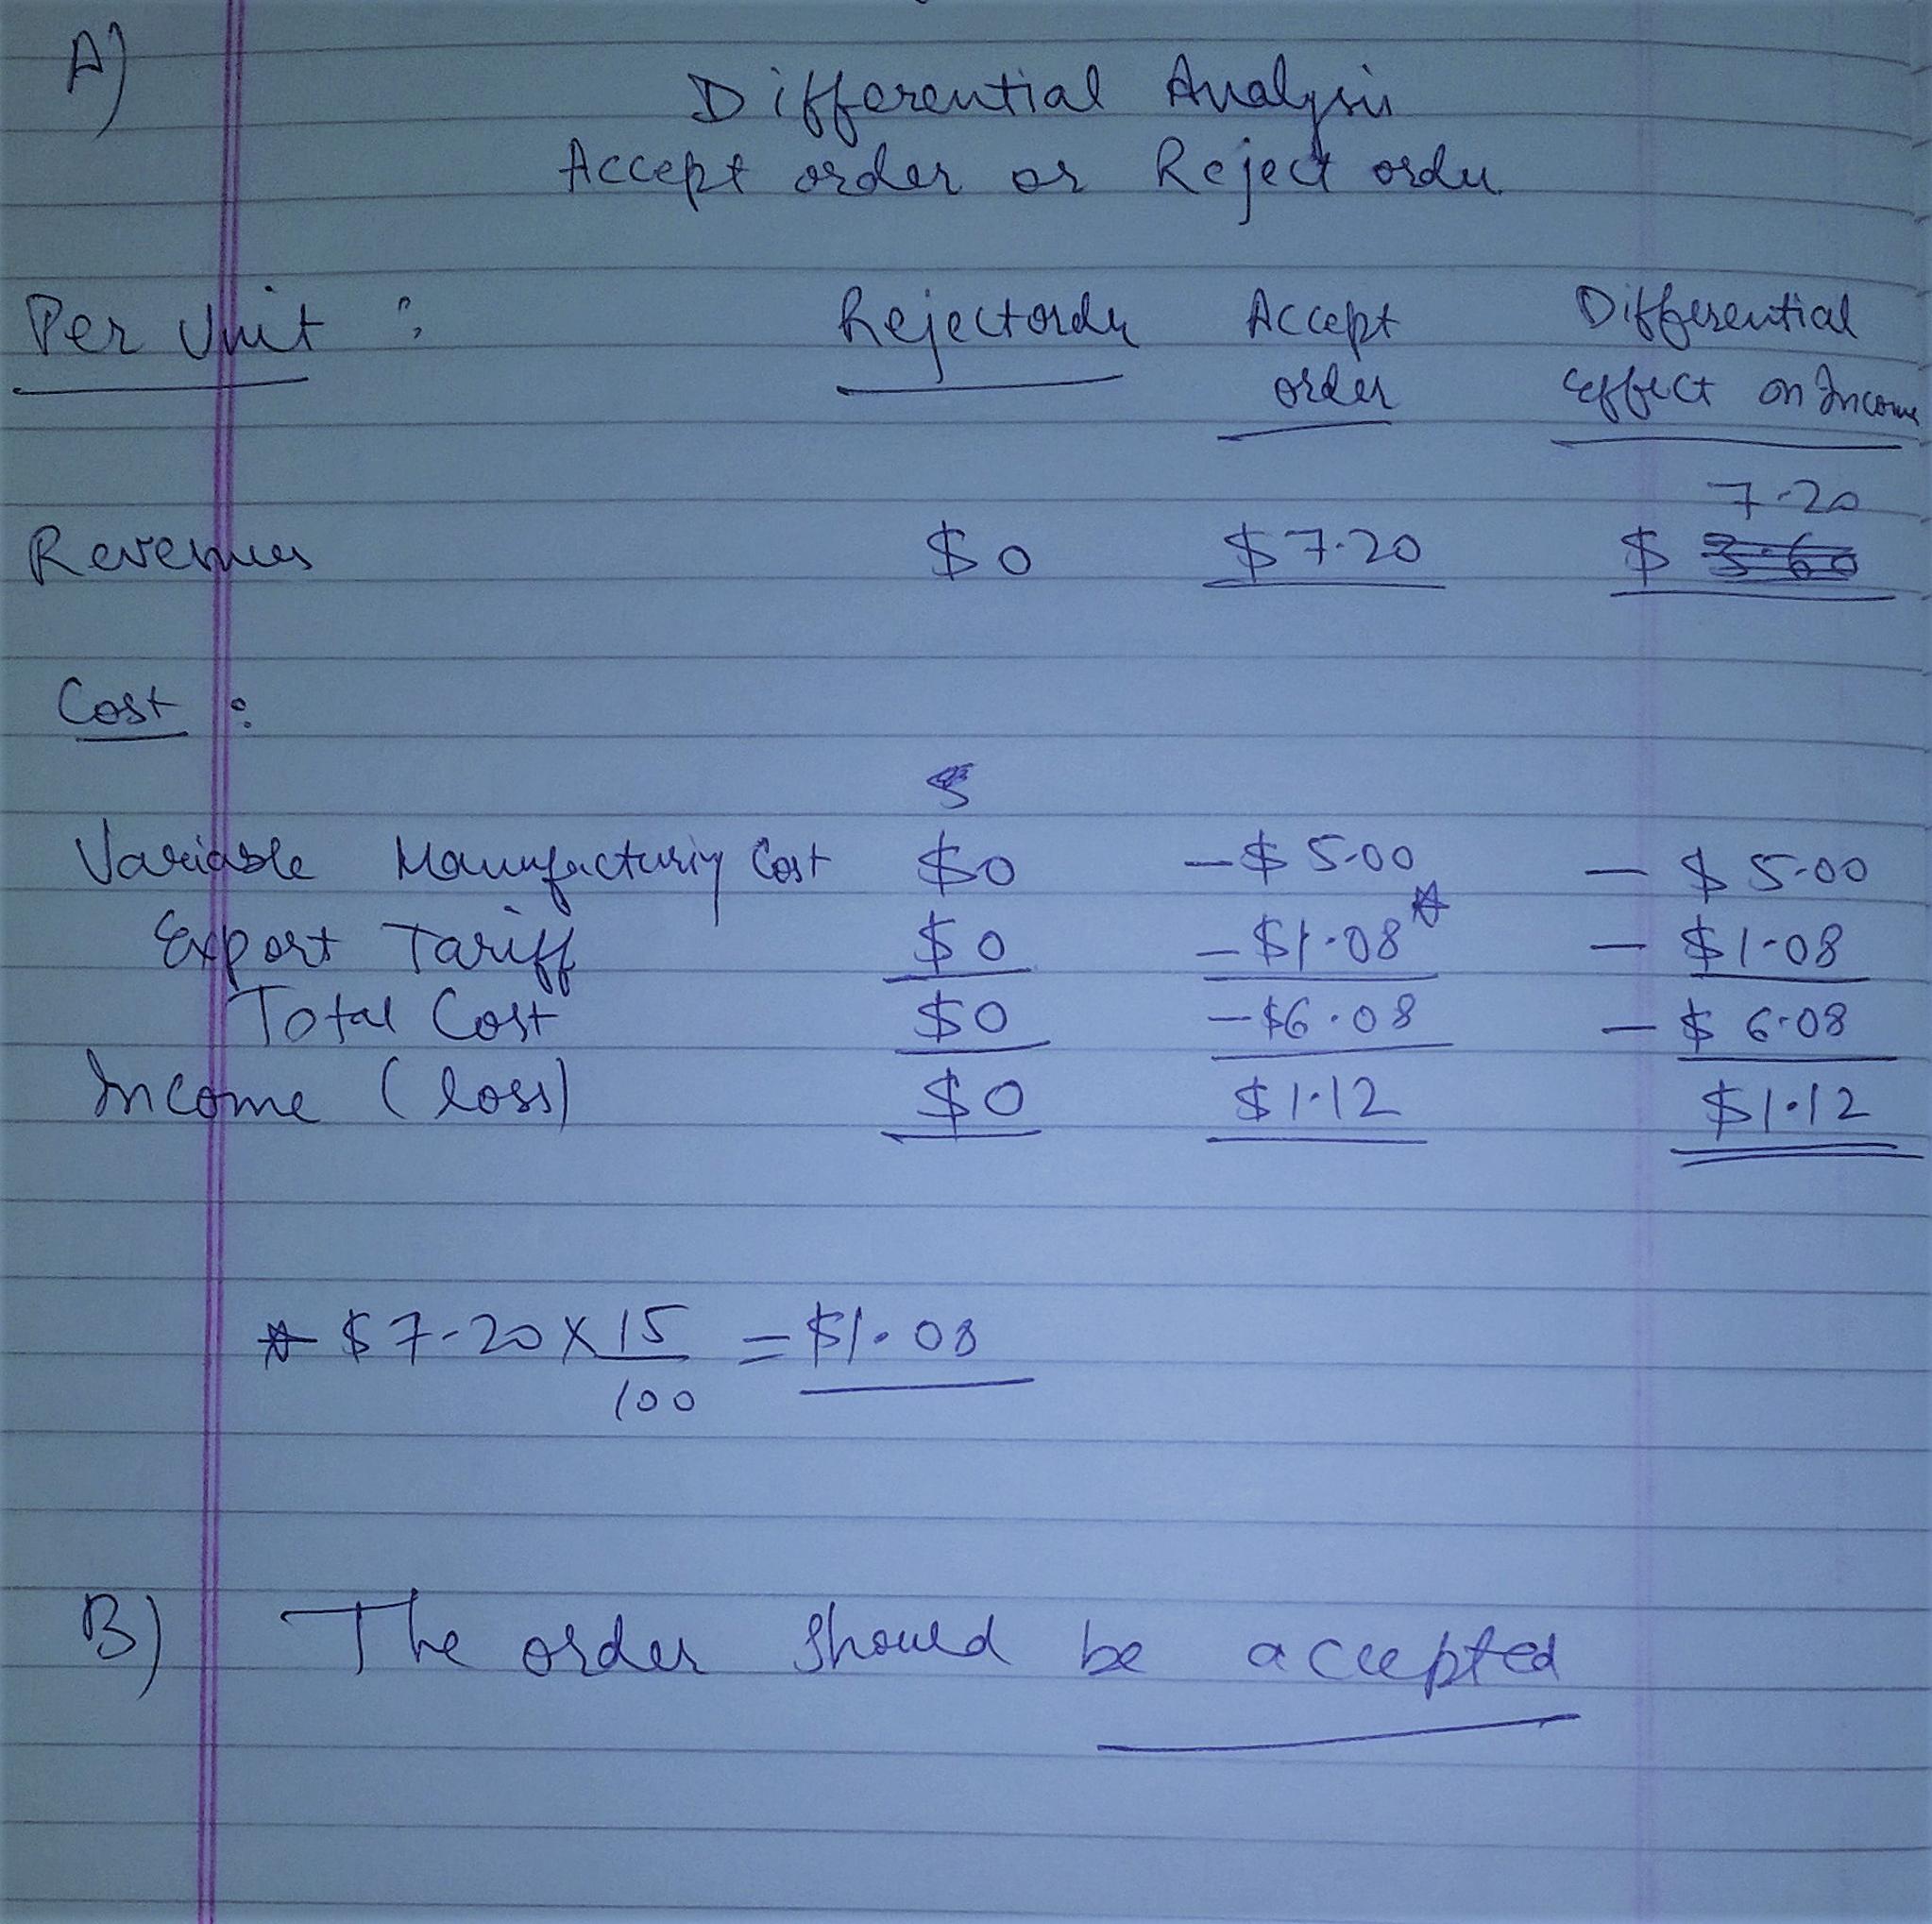 A)
Differential Analysis
Accept order or Reject order
Per Unit : Reject order Accept order Differential Effect on Income
7.20
Revenues $0 $7.20 $ 3.60
Cost :
Variable Manufacturing Cost $0 -$5.00 - $5.00
Export Tariff $0 -$1.08* - $1.08
Total Cost $0 -$6.08 - $6.08
Income (loss) $0 $1.12 $1.12
* $7.20 X 15/100 = $1.08
B) The order should be accepted